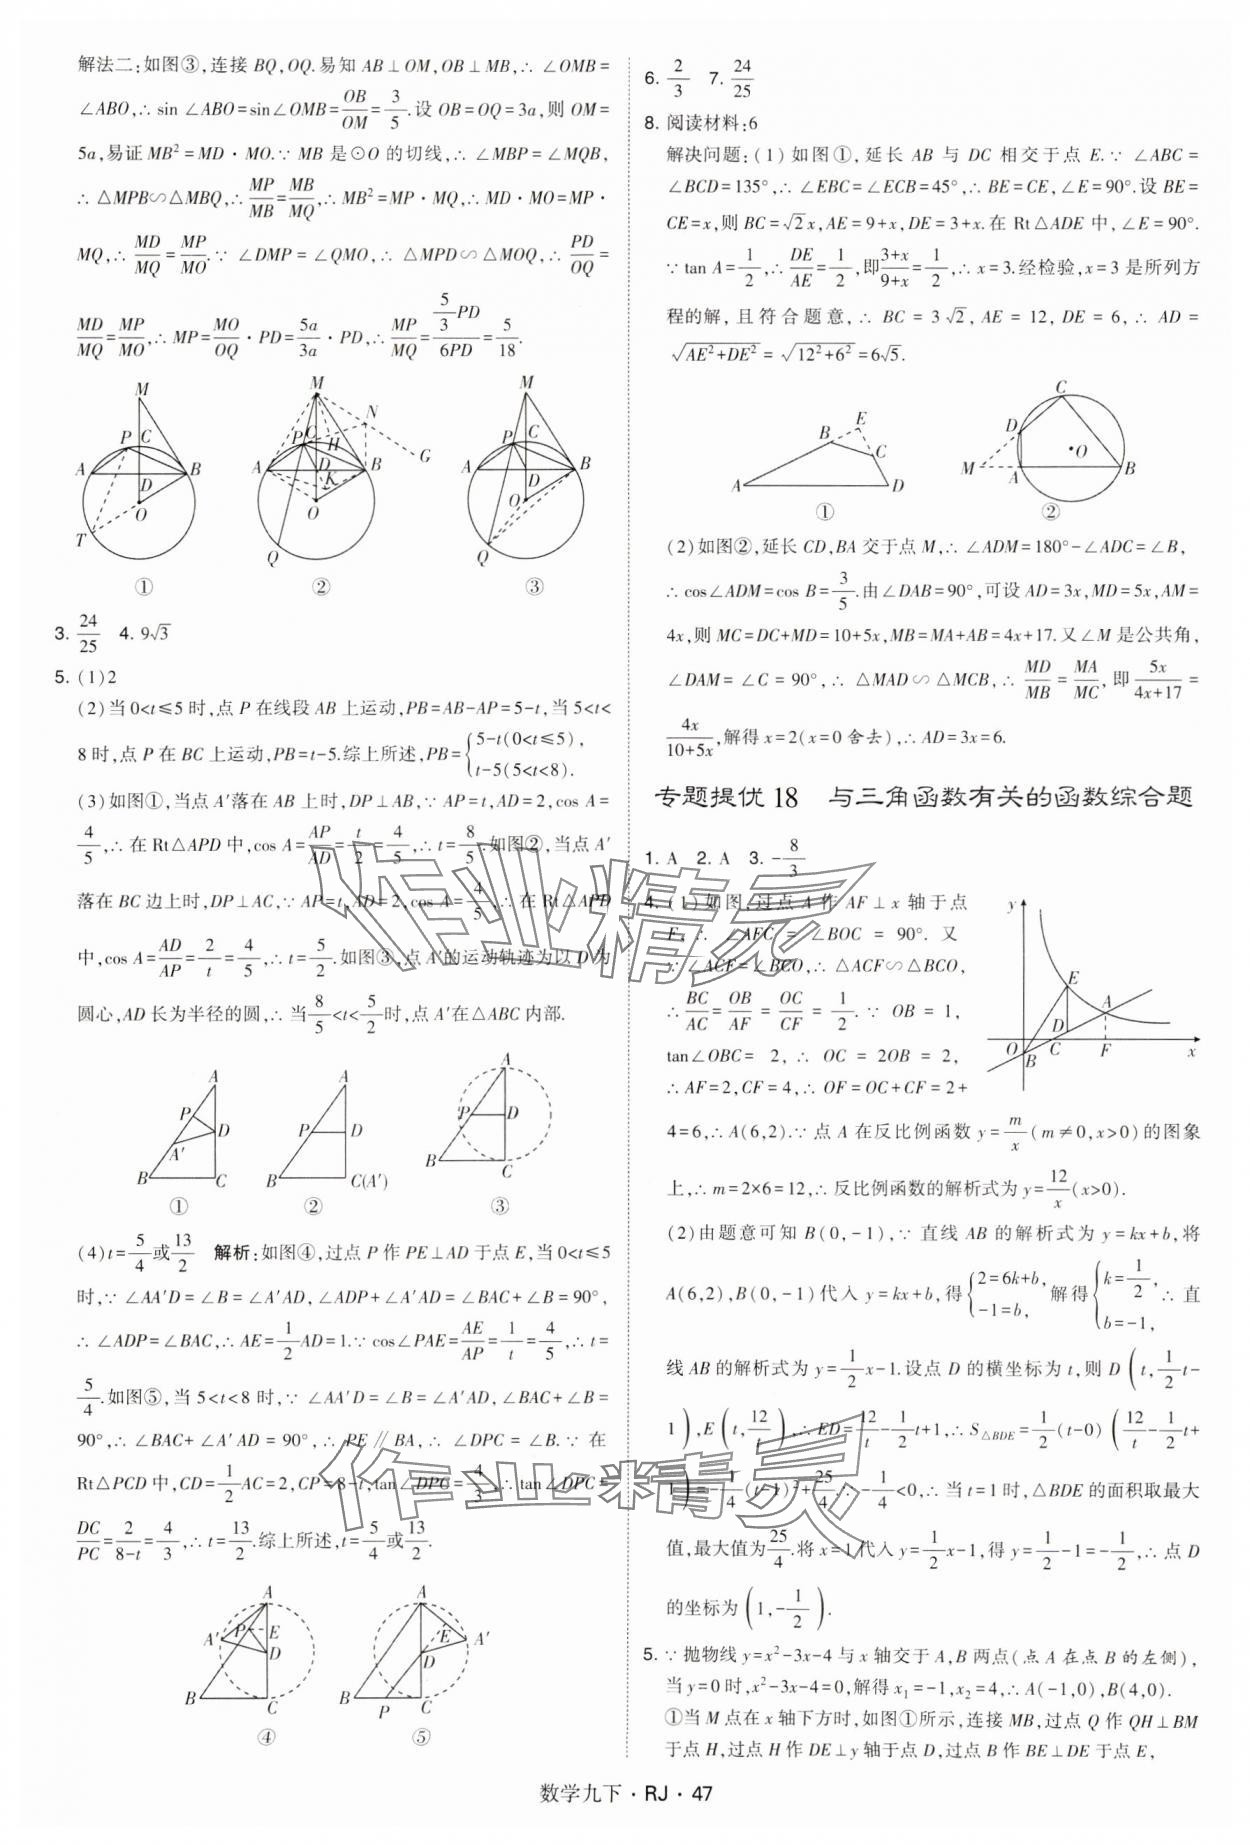 解法二:如图③,连接 BQ,OQ.易知 AB⊥OM,OB⊥MB,∴ ∠OMB=
∠ABO,∴ sin ∠ABO=sin∠OMB=OB/OM=3/5.设 OB=OQ=3a,则 OM=
5a,易证 MB²=MD·MO.∵ MB 是⊙O 的切线,∴ ∠MBP=∠MQB,
∴ △MPB∽△MBQ,∴ MP/MB=MB/MQ,∴ MB²=MP·MQ,∴ MD·MO=MP·
MQ,∴ MD/MQ=MP/MO.∵ ∠DMP=∠QMO,∴ △MPD∽△MOQ,∴ PD/OQ=
MD/MQ=MP/MO,∴ MP=MO/OQ·PD=5a/3a·PD,∴ MP/MQ=(5/3 PD)/(6PD)=5/18.
M P C A B D O T
①
M N P C H G A D B K O Q
②
M P C A B D O Q
③
3. 24/25 4. 9√3
5. (1)2
(2)当 0<t≤5 时,点 P 在线段 AB 上运动,PB=AB-AP=5-t,当 5<t<
8 时,点 P 在 BC 上运动,PB=t-5.综上所述,PB={5-t(0<t≤5), t-5(5<t<8).
(3)如图①,当点 A′落在 AB 上时,DP⊥AB,∵ AP=t,AD=2,cos A=
4/5,∴ 在 Rt△APD 中,cos A=AP/AD=t/2=4/5,∴ t=8/5.如图②,当点 A′
落在 BC 边上时,DP⊥AC,∵ AP=t,AD=2,cos A=4/5,∴ 在 Rt△APD
中,cos A=AD/AP=2/t=4/5,∴ t=5/2.如图③,点 A′的运动轨迹为以 D 为
圆心,AD 长为半径的圆,∴ 当 8/5<t<5/2时,点 A′在△ABC 内部.
A P D A′ B C
①
A P D B C(A′)
②
A P D B C
③
(4)t=5/4或13/2 解析:如图④,过点 P 作 PE⊥AD 于点 E,当 0<t≤5
时,∵ ∠AA′D=∠B=∠A′AD,∠ADP+∠A′AD=∠BAC+∠B=90°,
∴ ∠ADP=∠BAC,∴ AE=1/2AD=1.∵ cos∠PAE=AE/AP=1/t=4/5,∴ t=
5/4.如图⑤,当 5<t<8 时,∵ ∠AA′D=∠B=∠A′AD,∠BAC+∠B=
90°,∴ ∠BAC+∠A′AD=90°,∴ PE∥BA,∴ ∠DPC=∠B.∵ 在
Rt△PCD 中,CD=1/2AC=2,CP=8-t,tan∠DPC=4/3,∴ tan∠DPC=
DC/PC=2/(8-t)=4/3,∴ t=13/2.综上所述,t=5/4或13/2.
A A′ P E D B C
④
A E A′ D B P C
⑤
6. 2/3 7. 24/25
8. 阅读材料:6
解决问题:(1)如图①,延长 AB 与 DC 相交于点 E.∵ ∠ABC=
∠BCD=135°,∴ ∠EBC=∠ECB=45°,∴ BE=CE,∠E=90°.设 BE=
CE=x,则 BC=√2x,AE=9+x,DE=3+x.在 Rt△ADE 中,∠E=90°.
∵ tan A=1/2,∴ DE/AE=1/2,即(3+x)/(9+x)=1/2,∴ x=3.经检验,x=3 是所列方
程的解,且符合题意,∴ BC=3√2,AE=12,DE=6,∴ AD=
√(AE²+DE²)=√(12²+6²)=6√5.
B E C A D
①
C D O M A B
②
(2)如图②,延长 CD,BA 交于点 M,∴ ∠ADM=180°-∠ADC=∠B,
∴ cos∠ADM=cos B=3/5.由∠DAB=90°,可设 AD=3x,MD=5x,AM=
4x,则 MC=DC+MD=10+5x,MB=MA+AB=4x+17.又∠M 是公共角,
∠DAM=∠C=90°,∴ △MAD∽△MCB,∴ MD/MB=MA/MC,即5x/(4x+17)=
4x/(10+5x),解得 x=2(x=0 舍去),∴ AD=3x=6.
专题提优 18 与三角函数有关的函数综合题
1. A 2. A 3. -8/3
4. (1)如图,过点 A 作 AF⊥x 轴于点
F,∴ ∠AFC=∠BOC=90°.又
∵ ∠ACF=∠BCO,∴ △ACF∽△BCO,
∴ BC/AC=OB/AF=OC/CF=1/2.∵ OB=1,
tan∠OBC=2,∴ OC=2OB=2,
∴ AF=2,CF=4,∴ OF=OC+CF=2+
y E A D O B C F x
4=6,∴ A(6,2).∵ 点 A 在反比例函数 y=m/x(m≠0,x>0)的图象
上,∴ m=2×6=12,∴ 反比例函数的解析式为 y=12/x(x>0).
(2)由题意可知 B(0,-1),∵ 直线 AB 的解析式为 y=kx+b,将
A(6,2),B(0,-1)代入 y=kx+b,得{2=6k+b, -1=b, 解得{k=1/2, b=-1, ∴ 直
线 AB 的解析式为 y=1/2x-1.设点 D 的横坐标为 t,则 D(t,1/2t-
1),E(t,12/t),∴ ED=12/t-1/2t+1,∴ S△BDE=1/2(t-0)(12/t-1/2t+
1)=-1/4(t-1)²+25/4.∵ -1/4<0,∴ 当 t=1 时,△BDE 的面积取最大
值,最大值为25/4.将 x=1 代入 y=1/2x-1,得 y=1/2-1=-1/2,∴ 点 D
的坐标为(1,-1/2).
5. ∵ 抛物线 y=x²-3x-4 与 x 轴交于 A,B 两点(点 A 在点 B 的左侧),
当 y=0 时,x²-3x-4=0,解得 x₁=-1,x₂=4,∴ A(-1,0),B(4,0).
①当 M 点在 x 轴下方时,如图①所示,连接 MB,过点 Q 作 QH⊥BM
于点 H,过点 H 作 DE⊥y 轴于点 D,过点 B 作 BE⊥DE 于点 E,
作业精灵
作业精灵
数学九下·RJ·47